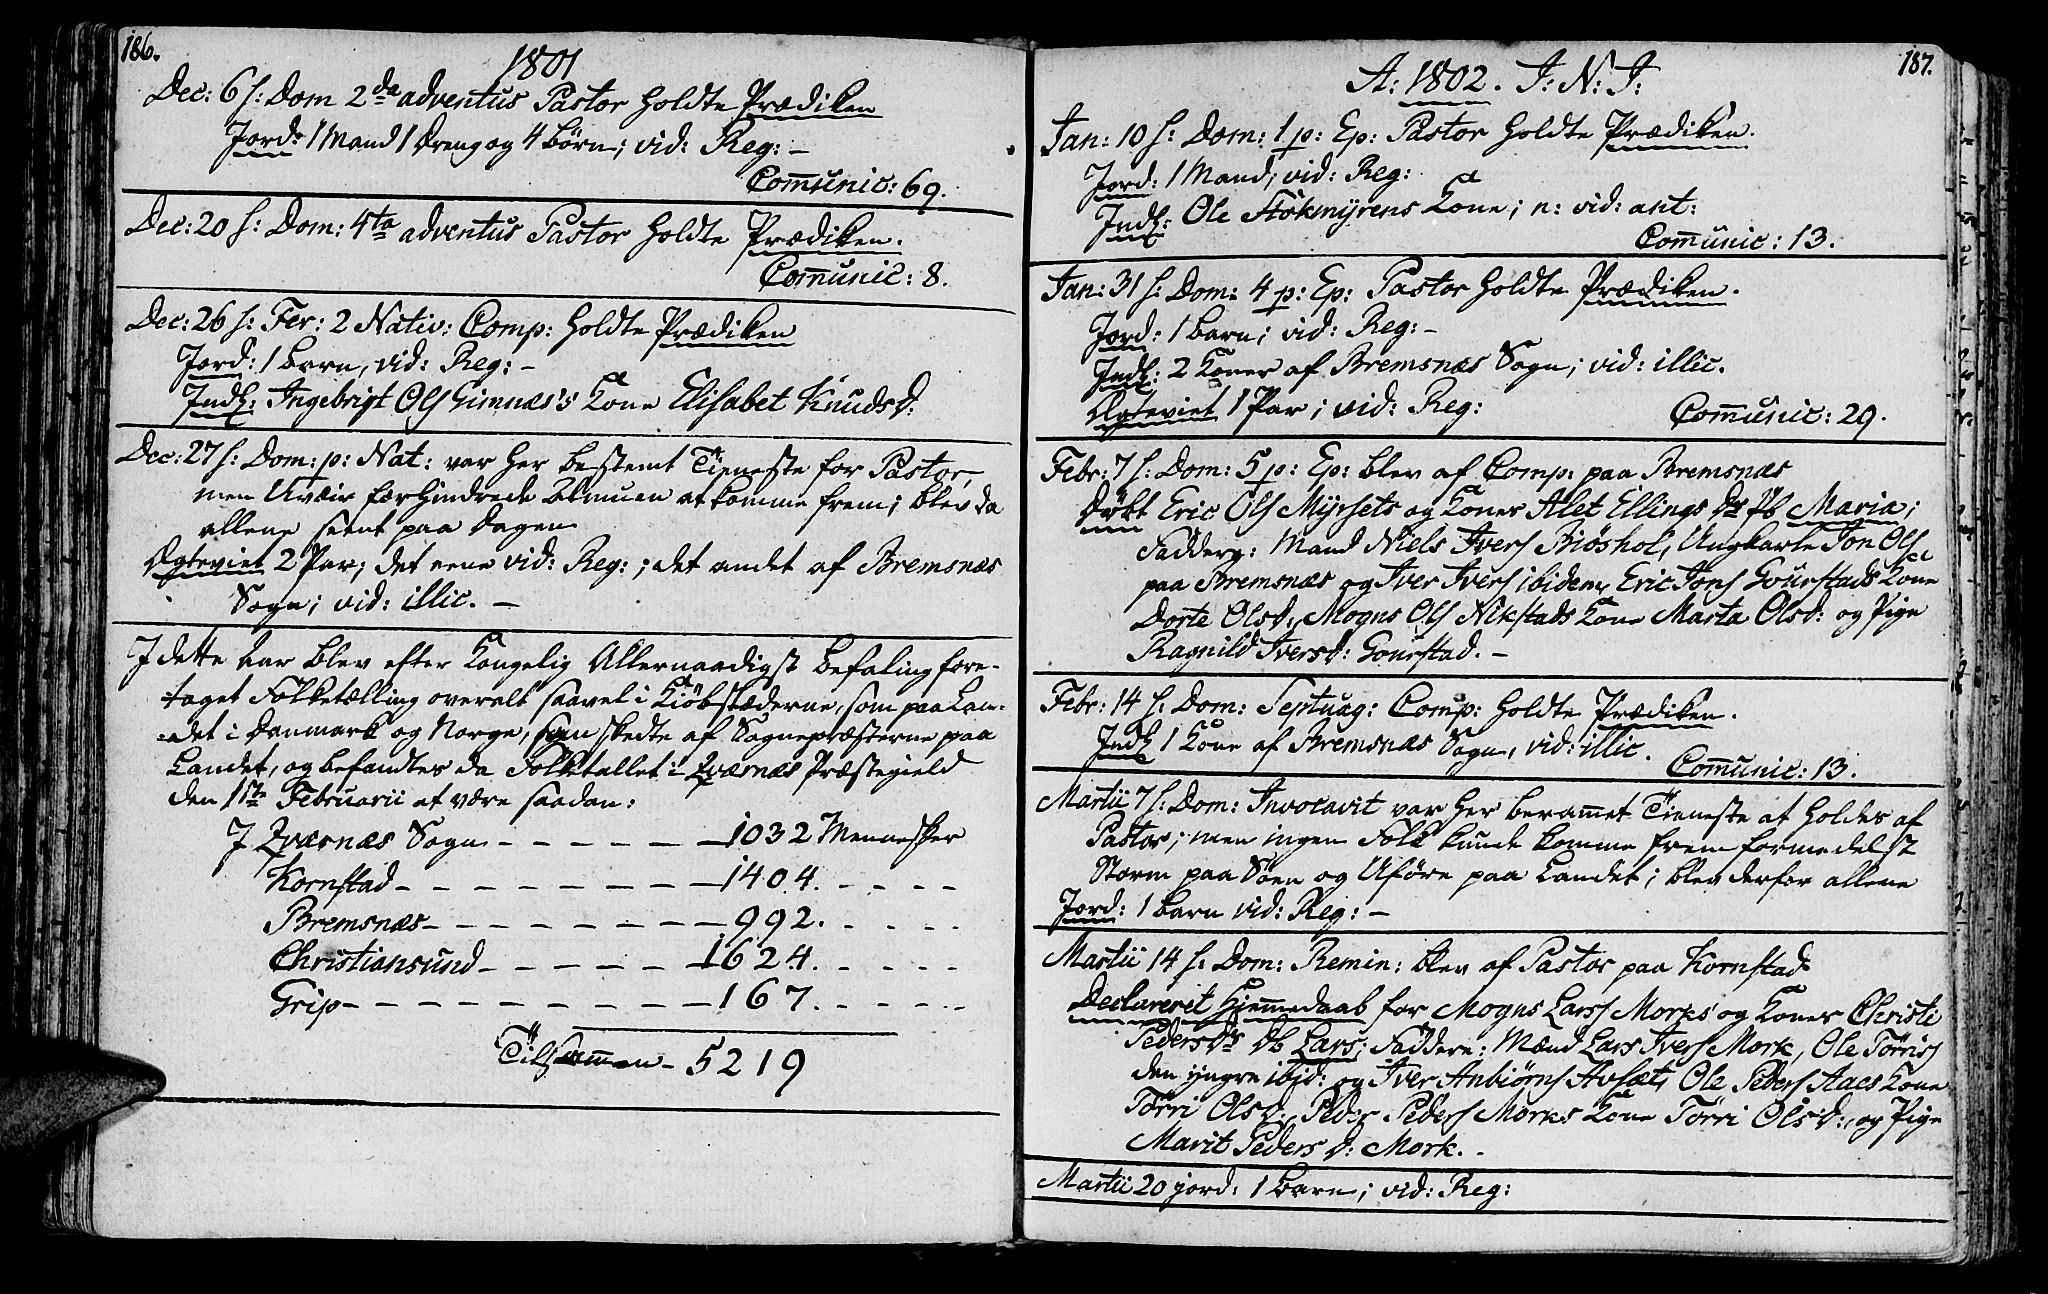 186.
1801
Dec: 6 s: Dom 2da adventus Pastor holdte Prædiken
Jord: 1 Mand 1 Dreng og 4 Børn; vid: Reg: –
Comunic: 69.
Dec: 20 s: Dom: 4ta adventus Pastor holdte Prædiken.
Comunic: 8.
Dec: 26 s: Fer: 2 Nativ: Comp: holdte Prædiken
Jord: 1 barn, vid: Reg: –
Indl: Ingebrigt Ols Gimnæs's Kone Elisabet KnudsD:
Dec: 27 s: Dom: p: Nat: var her bestemt Tieneste for Pastor,
men Uvæir forhindrede Almuen at komme frem; blev da
allene sent paa Dagen
Ægteviet 2 Par; det eene vid: Reg: ; det andet af Bremsnæs
Sogn; vid: illic. –
I dette Aar blev efter Kongelig Allernaadigst Befaling fore-
taget Folketælling overalt saavel i Kiøbstæderne, som paa Lan-
det i Danmark og Norge, som skedte af Sognepræsterne paa
Landet, og befandtes da Folketallet i Qværnæs Præstegield
den 1ste Februarii at være saadan:
I Qværnæs Sogn – – – – – – 1032 Mennesker
Kornstad – – – – – – – – 1404. – – – –
Bremsnæs – – – – – – – 992. – – – –
Christiansund – – – – – 1624. – – – –
Grip – – – – – – – – – 167. – – – –
Tilsammen – 5219
187.
A: 1802. I: N: I:
Jan: 10 s: Dom: 1 p: Ep: Pastor holdte Prædiken.
Jord: 1 Mand; vid: Reg:
Indl: Ole Stokmyrens Kone; n: vid: ant:
Comunic: 13.
Jan: 31 s: Dom: 4 p: Ep: Pastor holdte Prædiken.
Jord: 1 barn; vid: Reg: –
Indl: 2 Koner af Bremsnæs Sogn; vid: illic.
Ægteviet 1 Par; vid: Reg:
Comunic: 29.
Febr: 7 s: Dom: 5 p: Ep: blev af Comp: paa Bremsnæs
Døbt Eric Ols Myrsets og Kones Alet Ellings Dr Pb Maria;
Fadderg: Mand Niels Ivers Biøshol, Ungkarle Jon Ols
paa Bremsnæs og Iver Ivers ibidem, Eric Jons Gourstads Kone
Dorte OlsD:, Mogns Ols Nikstads Kone Marta OlsD: og Pige
Ragnild IversD: Gourstad. –
Febr: 14 s: Dom: Septuag: Comp: holdte Prædiken.
Indl 1 Kone af Bremsnæs Sogn, vid: illic.
Comunic: 13.
Martii 7 s: Dom: Invocavit var her beramet Tieneste at holdes af
Pastor; men ingen Folk kunde komme frem formedelst
Storm paa Søen og Uføre paa Landet; blev derfor allene
Jord: 1 barn vid: Reg: –
Martii 14 s: Dom: Remin: blev af Pastor paa Kornstad
Declareret Hjemedaab for Mogns Larss Morks og Kones Christi
Peders Dr Db Lars; Faddere: Mænd Lars Ivers Mork, Ole Tørriss
den yngre ibid: og Iver Anbiørns Avsæt, Ole Peders Aaes Kone
Tørri OlsD:, Peder Peders Morks Kone Tørri OlsD:, og Pige
Marit Peders D: Mork. –
Martii 20 jord: 1 barn; vid: Reg: